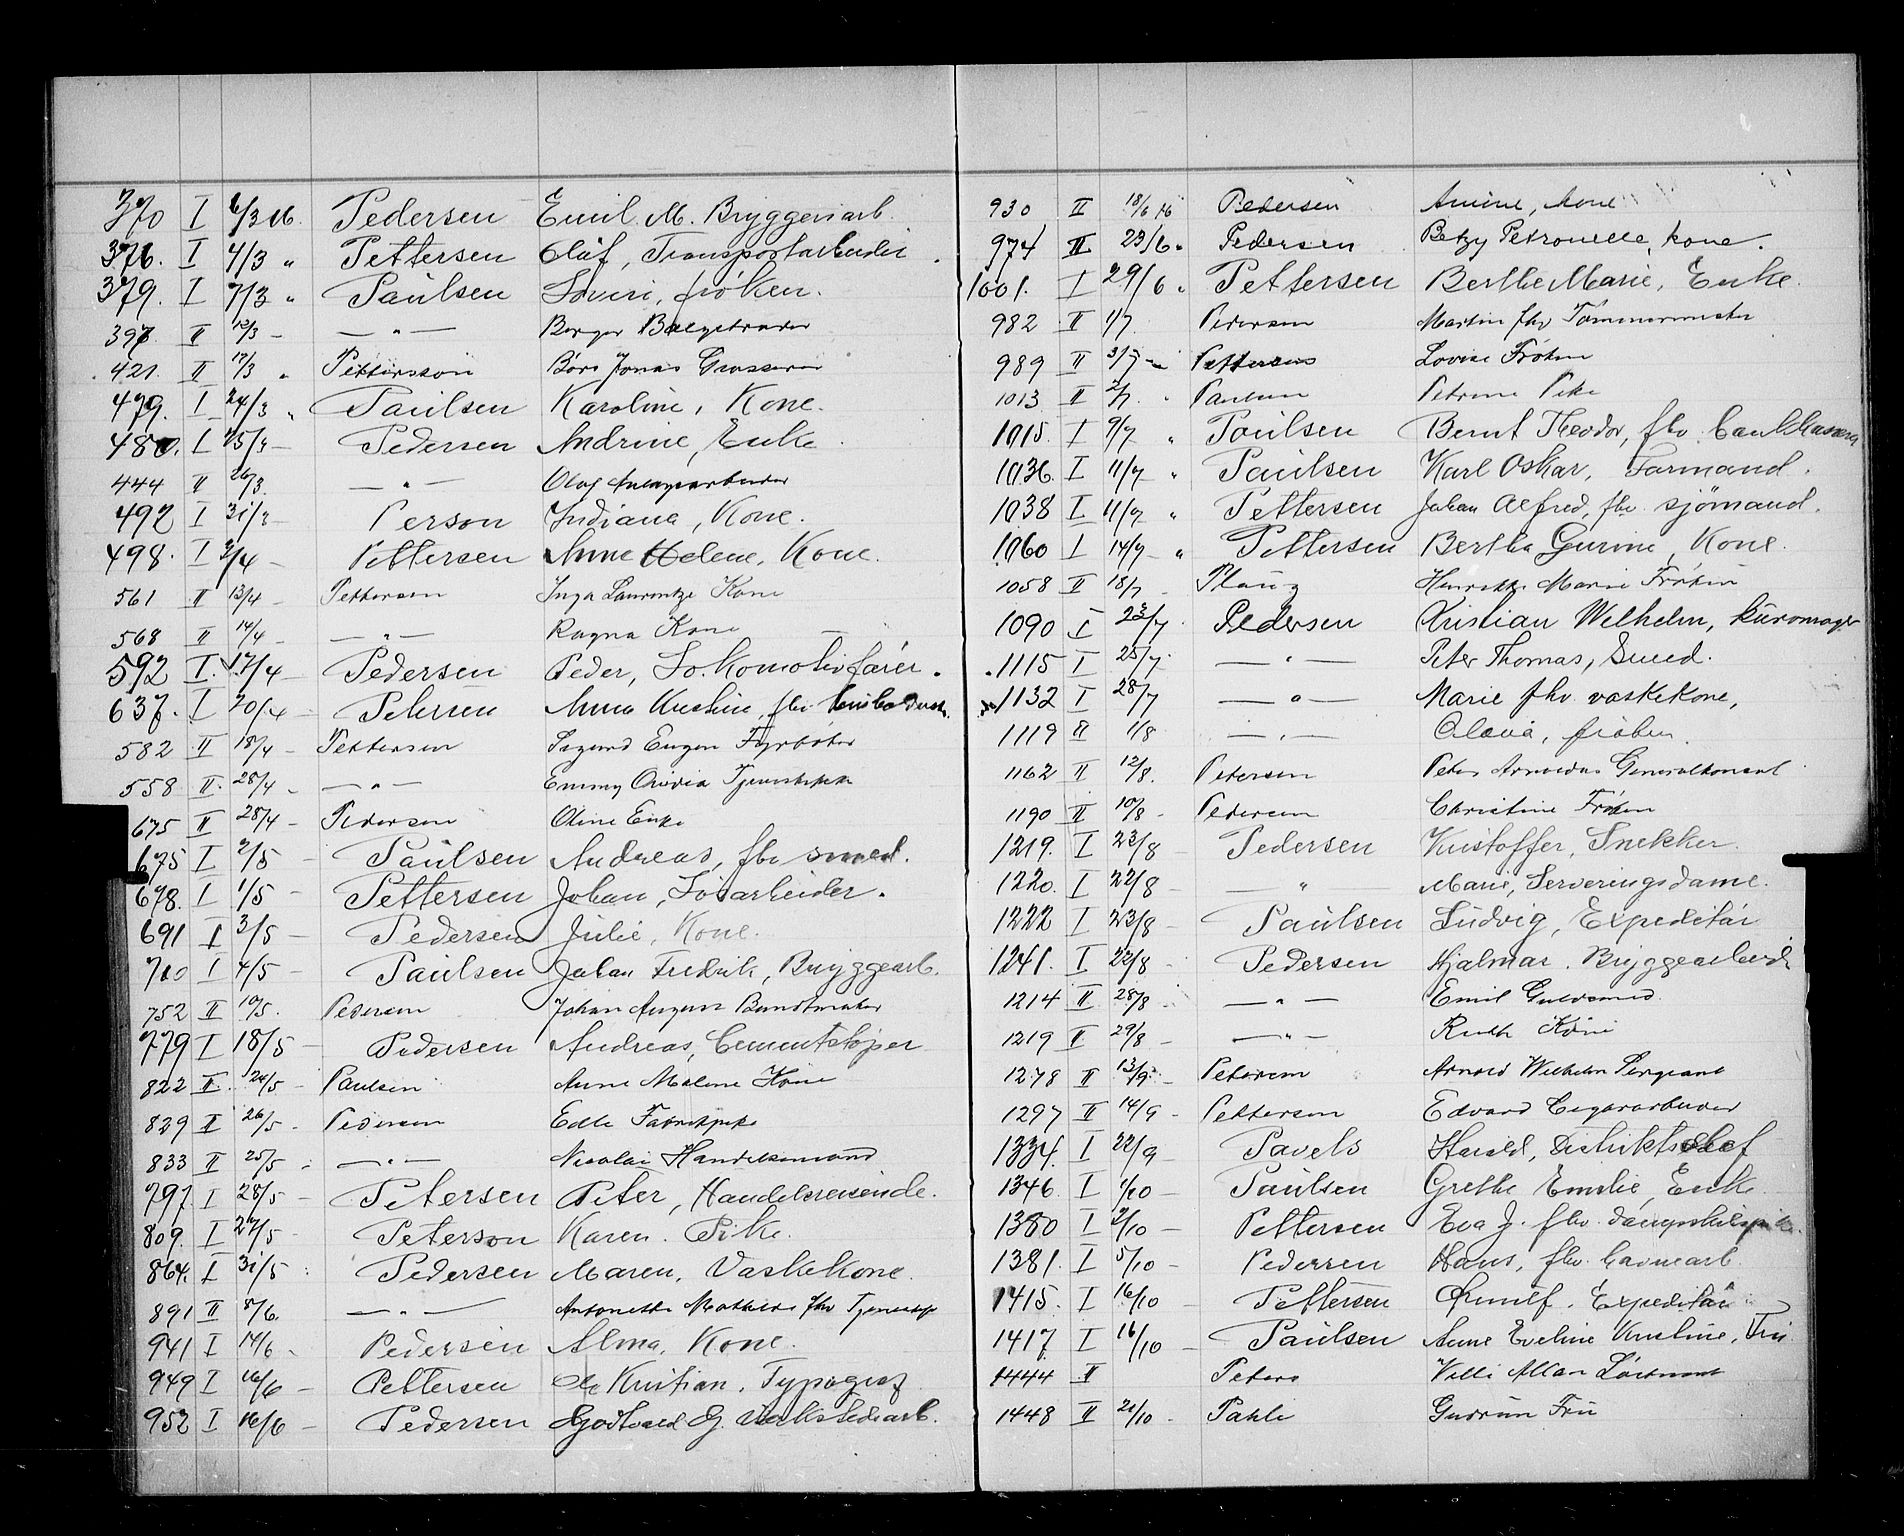 370 I 6/3 16. Pedersen Emil M. Bryggeriarb.
376. I 4/3 " Pettersen Olaf, Transportarbeider
379. I 7/3 " Paulsen Lovise, frøken.
397. II 12/3 - — " — Borger
421. II 17/3 " Pettersson Børs Jonas Grosserer
479. I 24/3 " Paulsen Karoline, Kone.
480. I 25/3 — Pedersen Andrine, Enke.
444 II 26/3. — " — Olaf Anlægsarbeider
492 I 31/3 — Person Indiana, Kone.
498. I 3/4 - Pettersen Anne Helene, Kone.
561 II 13/4 - Pettersen Inga Laurentze Kone
568 II 14/4 - — " — Ragna Kone
592 I. 17/4 — Pedersen Peder, Lokomotivfører.
637. I 20/4 - Petersen Anna Kristine, fhv.
582 II 18/4 - Pettersen Sigurd Eugen Fyrbøter
558 II. 28/4 - — " — Emmy Tjenestepike
675 II 28/4 - Pedersen Oline Enke
675 I 2/5 - Paulsen Andreas, fhv smed.
678. I 1/5 - Pettersen Johan, Løsarbeider.
691 I 3/5 - Pedersen Julie, Kone.
710 I 4/5 - Paulsen Johan Fredrik, Bryggearb.
752 II 10/5. Pedersen Johan August Buntmaker
779 I 18/5 - Pedersen Andreas, Cementstøper
822 II. 24/5 - Paulsen Anne Malene Kone
829 II 26/5 - Pedersen Edle Fabrikpike
833 II 25/5 - — " — Nicolai Handelsmand
797. I 28/5 - Petersen Peter, Handelsreisende.
809. I 27/5 - Peterson Karen. Pike.
864. I 31/5 - Pedersen Maren, Vaskekone.
891 II 8/6. — " — Antonette Mathilde fhv Tjenestep
941 I 14/6 - Pedersen Alma, Kone.
949 I 16/6 - Pettersen Kristian, Typograf
952 I 16/6 - Pedersen Godtvald G. Verkstedsarb.
930 II 18/6 16 Pedersen Amine, kone
974 II 23/6 " Pedersen Betzy Petronelle, kone.
1001. I 29/6 " Pettersen Berthe Marie, Enke.
982 II 1/7 Pedersen Martin fhv Tømmermester
989 II 3/7 — Pettersen Lovise Frøken
1013 II 2/7. " Paulsen Petrine Pike
1015. I 9/7 " Paulsen Bernt Theodor, fhv. bankkasserer
1036. I 11/7 " Paulsen Karl Oskar, Formand.
1038 I 11/7 " Pettersen Johan Alfred, fhv. sjömand.
1060 I 14/7 - " Pettersen Bertha Gurine, Kone.
1058 II 18/7 - Plauz Henrikke Marie Frøken
1090 I 23/7 Pedersen Kristian Wilhelm, kurvmager
1115 I 25/7. — " — Peter Thomas, Smed.
1132 I 28/7 — " — Marie fhv. vaskekone,
1119 II 1/8 — " — Olava, frøken
1162 II 12/8. Petersen Peter Generalkonsul
1190 II 10/8 - Pedersen Christine Frøken
1219. I 23/8 - Pedersen Kristoffer, Snekker.
1220. I 22/8 - — " — Marie, Serveringsdame.
1222 I 23/8 - Paulsen Ludvig, Expeditør
1241. I 22/8 - Pedersen Hjalmar. Bryggearbeid.
1214 II 28/8 - — " — Emil Guldsmed
1219 II 29/8 - — " — Ruth Kone
1278 II 13/9 - Petersen Arnold Wilhelm Sergeant
1297 II 14/9 - Pettersen Edvard Cigararbeider
1334. I 22/9 - Pavels Harald, Distriktschef
1346. I 1/10 - Paulsen Grethe Emilie, Enke
1380 I 2/10 - Pettersen Eva J. fhv.
1381. I 5/10 - Pedersen Hans, fhv. havnearb.
1415. I 16/10 - Pettersen Ørnulf. Expeditør
1417. I 16/10 - Paulsen Anne Eveline Kristine, Fru
1444 II Peters Villi Allan Løitnant
1448 II 21/10 - Pahle Gudrun Fru